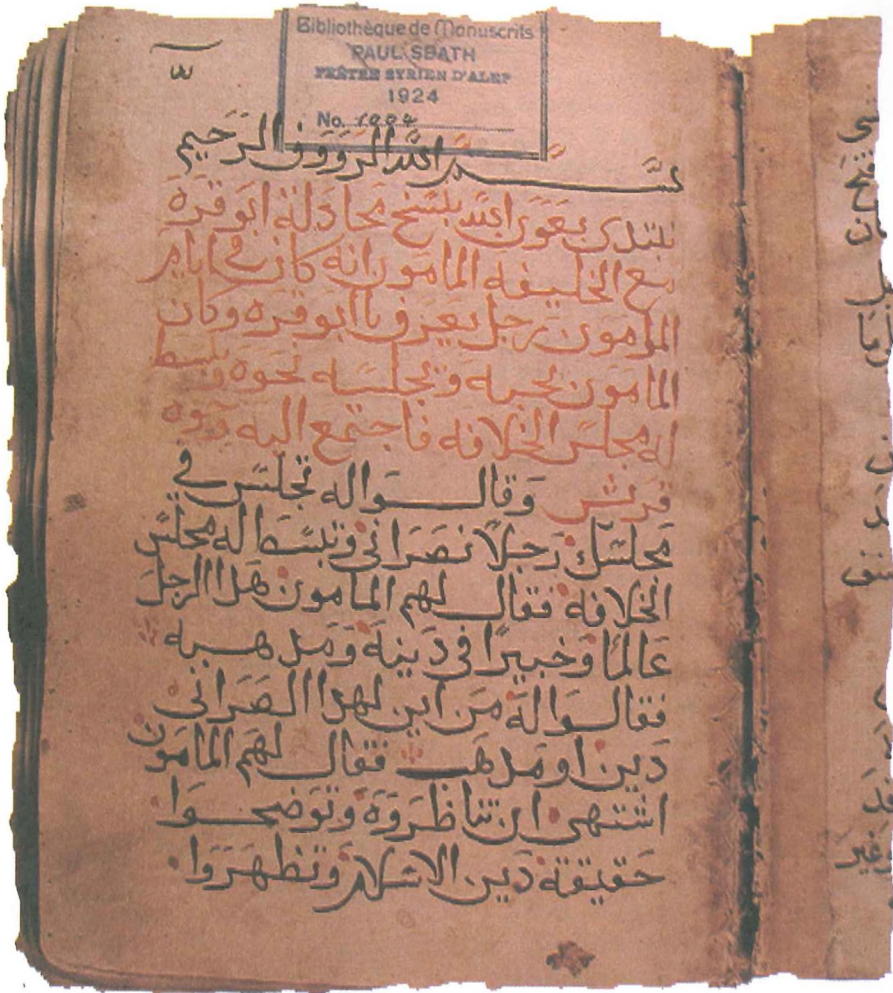 Bibliothèque de Manuscrits
PAUL SBATH
PRÊTRE SYRIEN D'ALEP
1924
No. 1004
بسم الله الرووف الرحيم
نبتدى بعون الله بنسخ مجادلة ابو قره
مع الخليفه المامون انه كان في ايام
المامون رجل يعرف بابو قره وكان
المامون يحبه ويجلسه نحوه ويبسط
له مجلس الخلافه فاجتمع اليه
قريش وقالوا له تجلس في
مجلسك رجلاً نصراني وتبسط له مجلس
الخلافه فقال لهم المامون هدا الرجل
عالماً وخبيراً في دينه ومدهبه
فقالوا له من اين لهدا النصراني
دين او مدهب فقال لهم المامون
اشتهي ان تناظروه وتوضحوا
حقيقة دين الاسلام وتظهروا